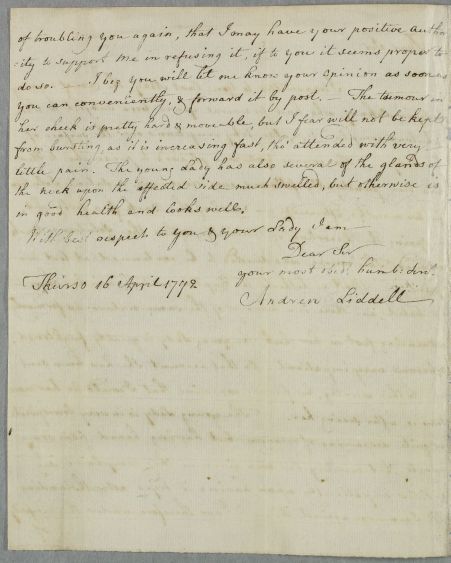 of troubling you again, that I may have your positive autho
rity to support me in refusing it, if to you it seems proper to
do so. I beg you will let me know your opinion as soon as
you can conveniently, & forward it by post. — The tumour in
her cheek is pretty hard & moveable, but I fear will not be kept
from bursting, as it is increasing fast, tho' attended with very
little pain. The young Lady has also several of the glands of
the neck upon the affected side much swelled, but otherwise is
in good health and looks well.
With best respects to you & your Lady I am
Dear Sir
your most obed: humb: servt.
Thurso 16 April 1792
Andrew Liddell